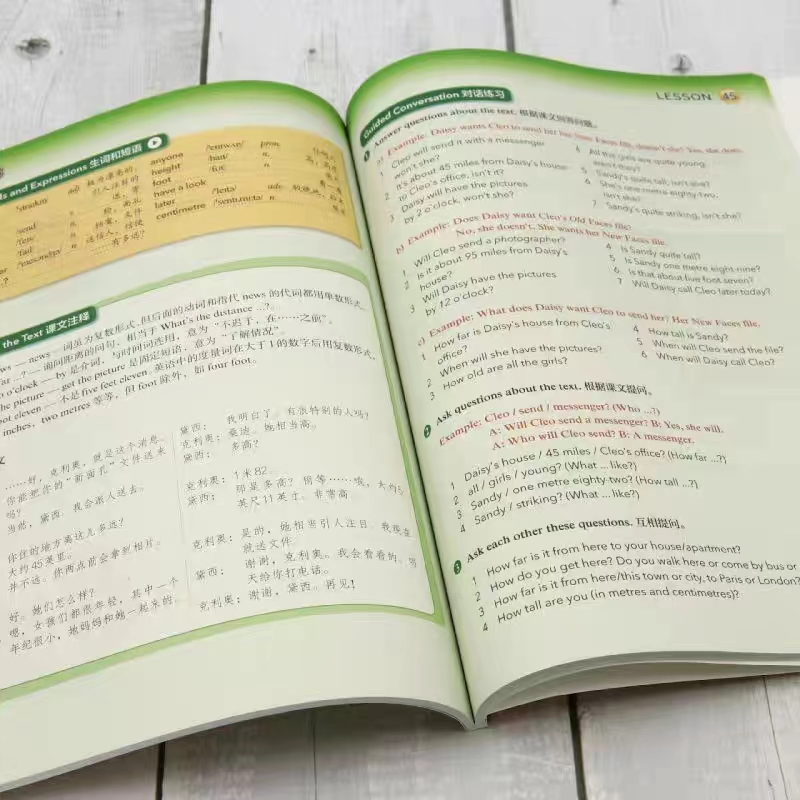 ds and Expressions 生词和短语
anyone /'enɪwʌn/ pron.
height /haɪt/ n.
foot /fʊt/ n.
have a look
later /'leɪtə/ adv.
centimetre /'sentɪmiːtə/ n.
the Text 课文注释
news — news 一词虽为复数形式,但后面的动词和指代 news 的代词都用单数形式。
far ...? — 询问距离的问句,相当于 What's the distance ...?
o'clock — by 是介词,与时间词连用,意为“不迟于,在……之前”。
the picture — get the picture 是固定短语,意为“了解情况”。
oot eleven — 不是 five feet eleven。英语中的度量词在大于1的数字后用复数形式,
inches, two metres 等等,但 foot 除外,如 four foot。
文
……好,克利奥,就是这个消息。
你能把你的“新面孔”文件送来
吗?
当然,黛西。我会派人送去。
你住的地方离这儿多远?
大约45英里。
并不远。你两点前会拿到相片。
好。她们怎么样?
嗯,女孩们都很年轻,其中一个
年纪很小,她妈妈和她一起来的。
黛西: 我明白了。有张特别的人吗?
克利奥: 桑迪。她相当高。
黛西: 多高?
克利奥: 1米82。
黛西: 那是多高?稍等……唉,大约5
英尺11英寸。非常高。
克利奥: 是的,她相当引人注目。我现在
就送文件。
黛西: 谢谢,克利奥。我会看看的。明
天给你打电话。
克利奥: 谢谢,黛西。再见!
LESSON 45
Guided Conversation 对话练习
1 Answer questions about the text. 根据课文回答问题。
a) Example: Daisy wants Cleo to send her her New Faces file, doesn't she? Yes, she does.
1 Cleo will send it with a messenger,
won't she?
2 It's about 45 miles from Daisy's house
to Cleo's office, isn't it?
3 Daisy will have the pictures
by 2 o'clock, won't she?
4 All the girls are quite young,
aren't they?
5 Sandy's quite tall, isn't she?
6 She's one metre eighty-two,
isn't she?
7 Sandy's quite striking, isn't she?
b) Example: Does Daisy want Cleo's Old Faces file?
No, she doesn't. She wants her New Faces file.
1 Will Cleo send a photographer?
2 Is it about 95 miles from Daisy's
house?
3 Will Daisy have the pictures
by 12 o'clock?
4 Is Sandy quite tall?
5 Is Sandy one metre eight-nine?
6 Is that about five foot seven?
7 Will Daisy call Cleo later today?
c) Example: What does Daisy want Cleo to send her? Her New Faces file.
1 How far is Daisy's house from Cleo's
office?
2 When will she have the pictures?
3 How old are all the girls?
4 How tall is Sandy?
5 When will Cleo send the file?
6 When will Daisy call Cleo?
2 Ask questions about the text. 根据课文提问。
Example: Cleo / send / messenger? (Who ...?)
A: Will Cleo send a messenger? B: Yes, she will.
A: Who will Cleo send? B: A messenger.
1 Daisy's house / 45 miles / Cleo's office? (How far ...?)
2 all / girls / young? (What ... like?)
3 Sandy / one metre eighty-two? (How tall ...?)
4 Sandy / striking? (What ... like?)
3 Ask each other these questions. 互相提问。
1 How far is it from here to your house/apartment?
2 How do you get here? Do you walk here or come by bus or
3 How far is it from here/this town or city, to Paris or London?
4 How tall are you (in metres and centimetres)?